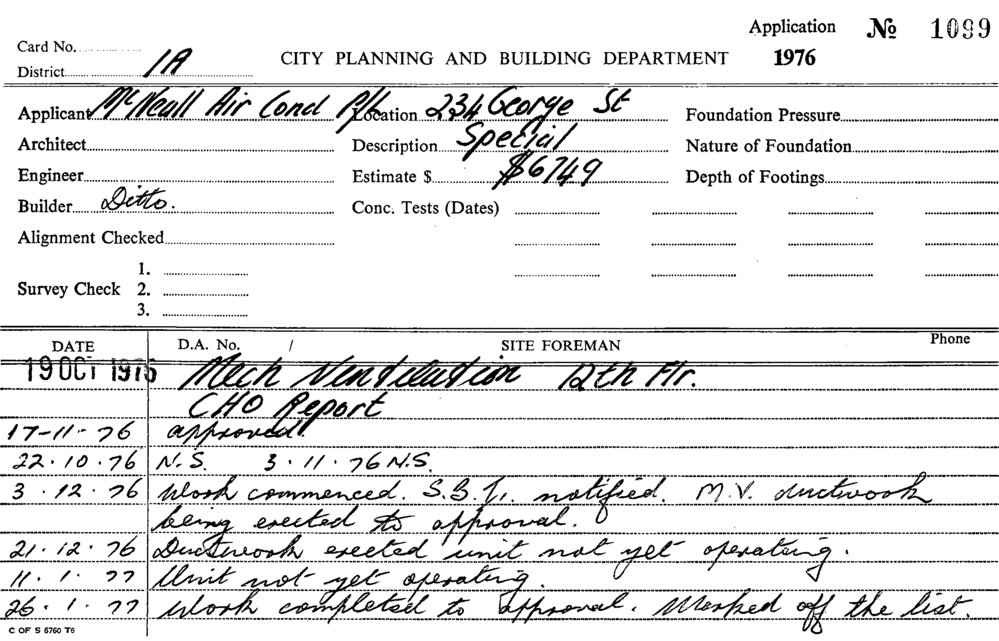 Application No 1099
Card No.
CITY PLANNING AND BUILDING DEPARTMENT 1976
District 1A
Applicant McNeall Air Cond P/L Location 234 George St Foundation Pressure
Architect Description Special Nature of Foundation
Engineer Estimate $ $6749 Depth of Footings
Builder Ditto. Conc. Tests (Dates)
Alignment Checked
1.
Survey Check 2.
3.
DATE D.A. No. / SITE FOREMAN Phone
19 OCT 1976 Mech Ventilation 12th Flr.
CHO Report
17-11-76 approved.
22.10.76 N.S. 3.11.76 N.S.
3.12.76 Work commenced. notified. M.V. ductwork
being erected to approval.
21.12.76 Ductwork erected unit not yet operating.
11.1.77 Unit not yet operating.
26.1.77 Work completed to approval. Marked off the list.
C OF S 6760 T6